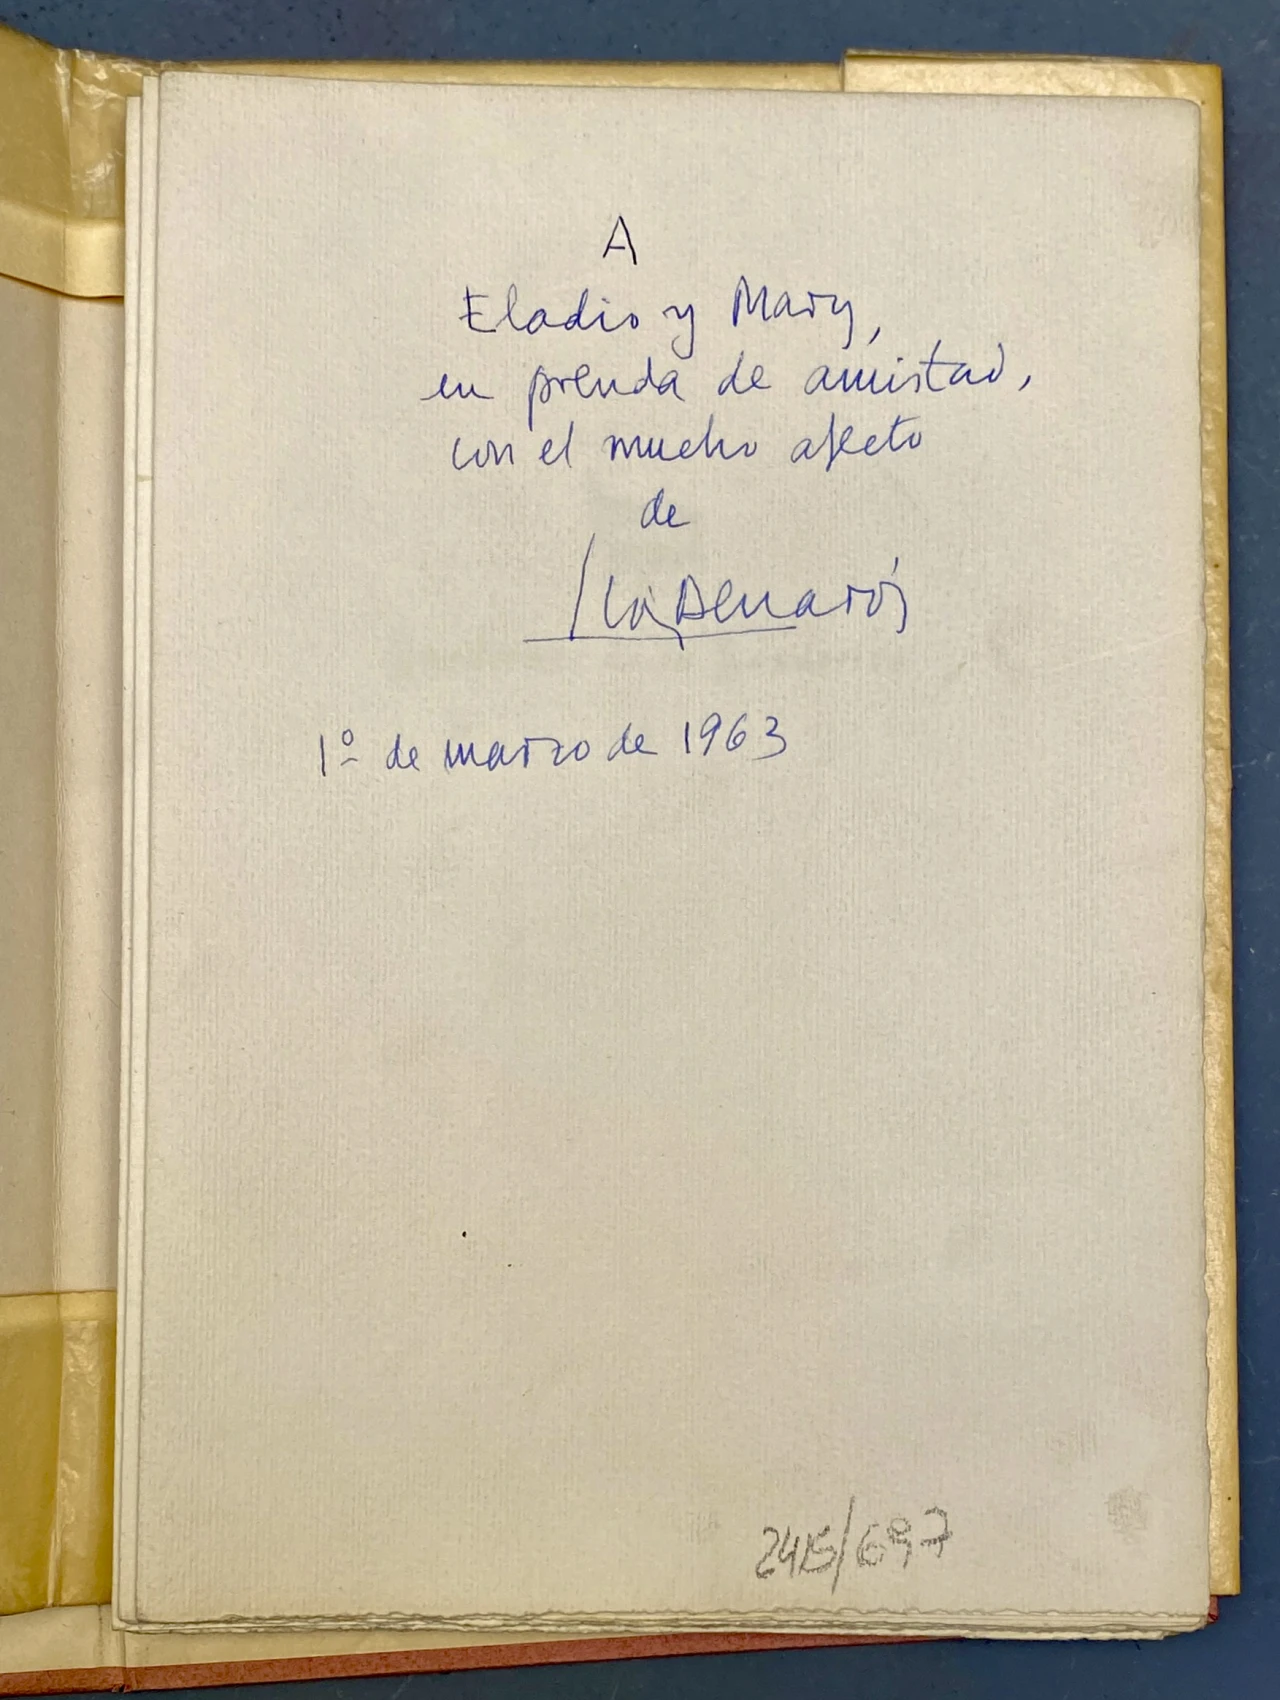 A
Eladio y Mary,
en prenda de amistad,
con el mucho afecto
de
1º de marzo de 1963
2415/697